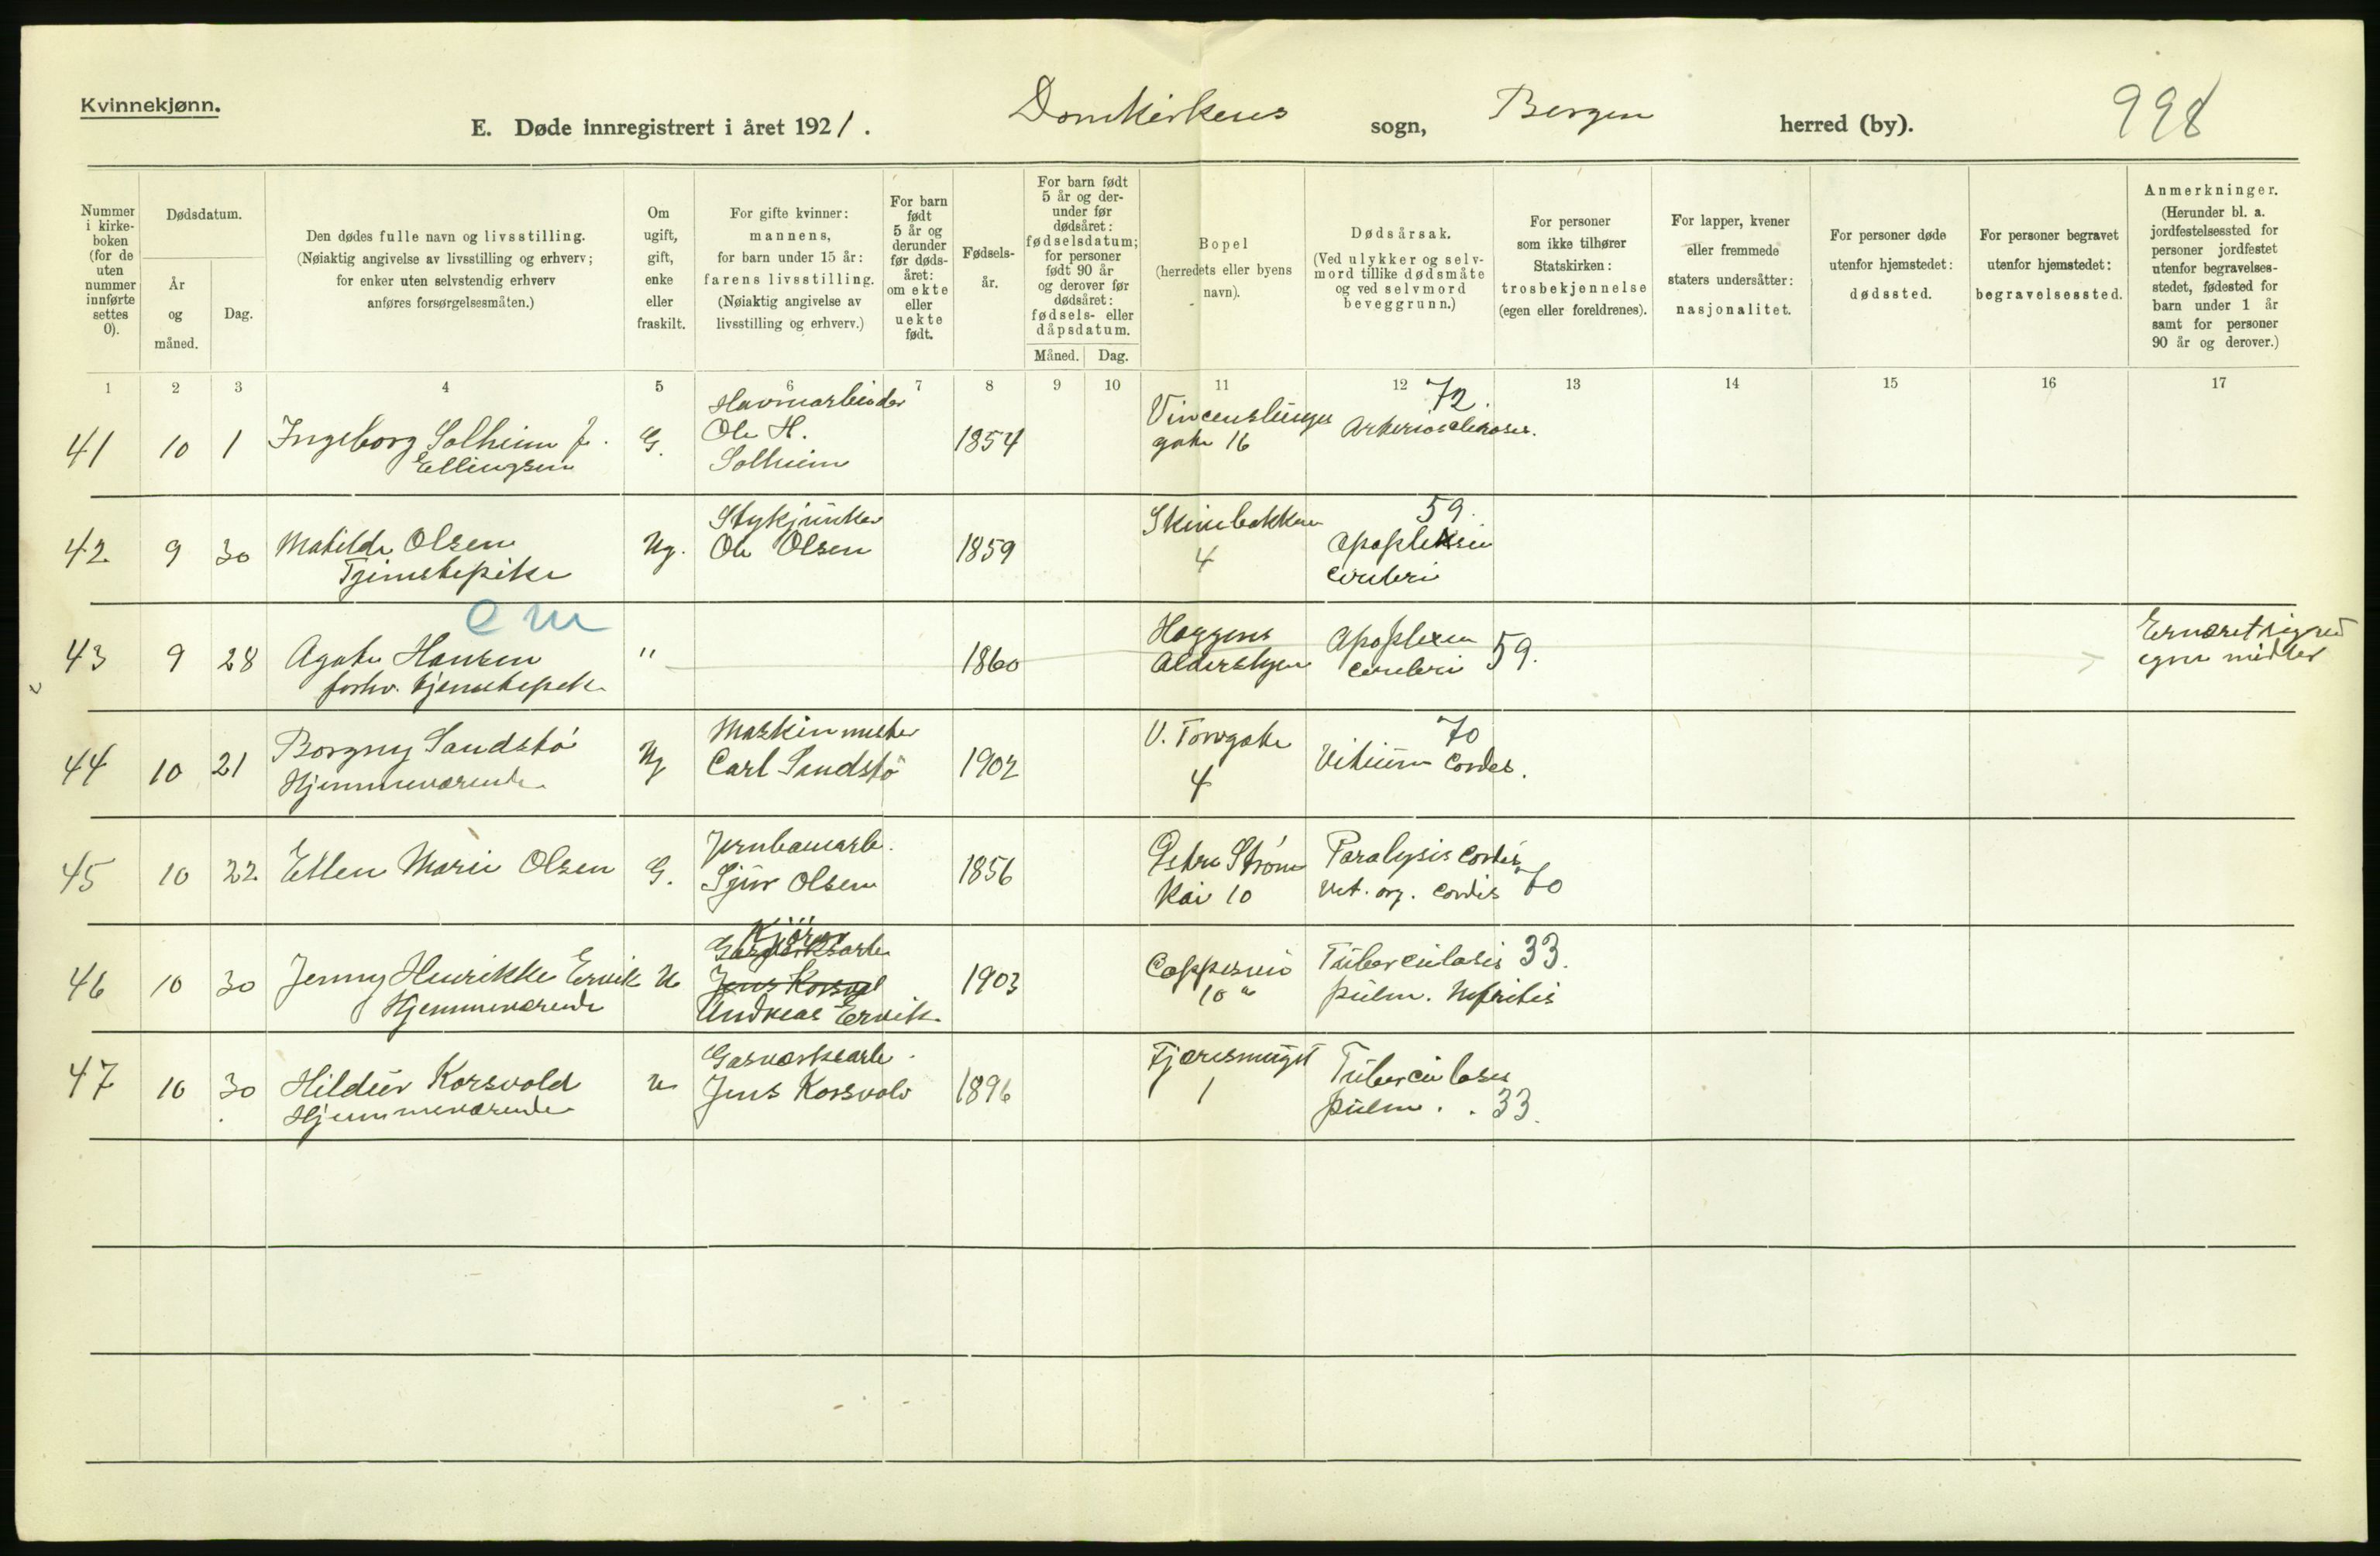 Kvinnekjønn.
E. Døde innregistrert i året 1921. Domkirkens sogn, Bergen herred (by). 998
Nummer i kirkeboken (for de uten nummer innførte settes 0).
Dødsdatum.
År og måned.
Dag.
Den dødes fulle navn og livsstilling.
(Nøiaktig angivelse av livsstilling og erhverv;
for enker uten selvstendig erhverv
anføres forsørgelsesmåten.)
Om ugift, gift, enke eller fraskilt.
For gifte kvinner: mannens,
for barn under 15 år:
farens livsstilling.
(Nøiaktig angivelse av
livsstilling og erhverv.)
For barn født 5 år og derunder før dødsåret: om ekte eller uekte født.
Fødselsår.
For barn født 5 år og derunder før dødsåret: fødselsdatum; for personer født 90 år og derover før dødsåret: fødsels- eller dåpsdatum.
Måned. Dag.
Bopel
(herredets eller byens
navn).
Dødsårsak.
(Ved ulykker og selvmord tillike dødsmåte og ved selvmord beveggrunn.)
For personer
som ikke tilhører
Statskirken:
trosbekjennelse
(egen eller foreldrenes).
For lapper, kvener
eller fremmede
staters undersåtter:
nasjonalitet.
For personer døde
utenfor hjemstedet:
dødssted.
For personer begravet
utenfor hjemstedet:
begravelsessted.
Anmerkninger.
(Herunder bl. a.
jordfestelsessted for
personer jordfestet
utenfor begravelses-
stedet, fødested for
barn under 1 år
samt for personer
90 år og derover.)
1 2 3 4 5 6 7 8 9 10 11 12 13 14 15 16 17
41 10 1 Ingeborg Solheim f. Ellingsen G. Havnarbeider Ole H. Solheim 1854 Vincenslunges gate 16 72. Arteriosclerosis.
42 9 30 Matilde Olsen Tjenestepike Ug. Stykjunker Ole Olsen 1859 Skivebakken 4 59. Apoplexia cerebri
em
43 9 28 Agate Hansen forhv. tjenestepike " 1860 Haggens Aldershjem Apoplexia cerebri 59. Ernæret sig ved egne midler
44 10 21 Borgny Sandstö Hjemmeværende Ug Maskinmester Carl Sandstö 1902 V. Torvgate 4 70 Vitium Cordis.
45 10 22 Ellen Marie Olsen G. Jernbanearb. Sjur Olsen 1856 Petra Ström Kai 10 Paralysis Cordis Vit. org. Cordis 70
46 10 30 Jenny Henrikke Ervik Hjemmeværende U Kjörer Gasverksarb. Jens Korsvol Andreas Ervik. 1903 Cappesvei 10 a Tuberculosis 33. pulm. Nefritis
47 10 30 Hildur Korsvold Hjemmeværende U Gasverksarb. Jens Korsvold 1896 Fjæresmuget 1 Tuberculosis pulm. . 33.